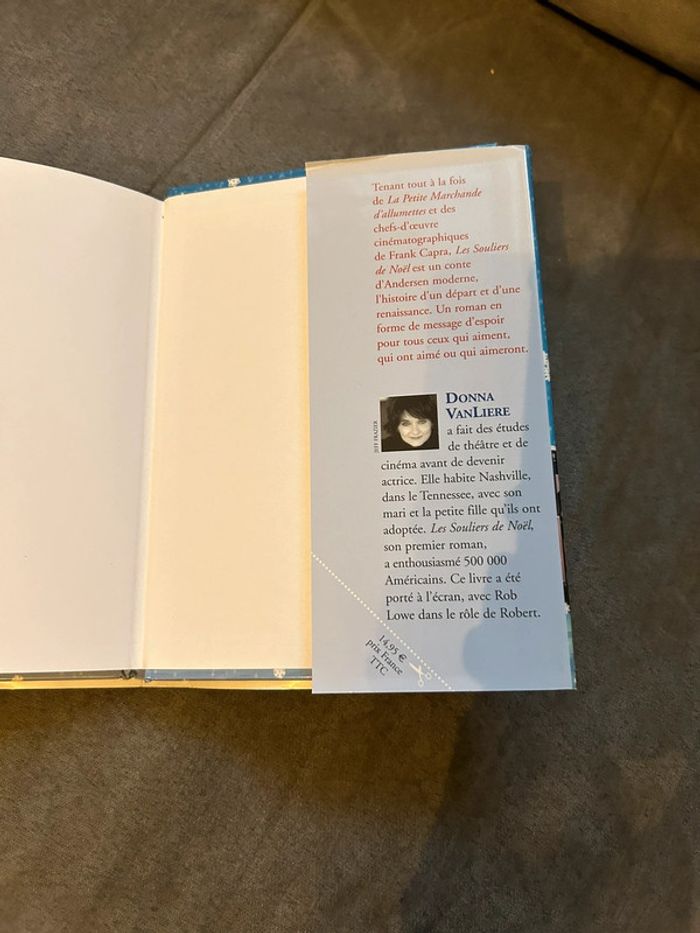 Tenant tout à la fois
de La Petite Marchande
d'allumettes et des
chefs-d'œuvre
cinématographiques
de Frank Capra, Les Souliers
de Noël est un conte
d'Andersen moderne,
l'histoire d'un départ et d'une
renaissance. Un roman en
forme de message d'espoir
pour tous ceux qui aiment,
qui ont aimé ou qui aimeront.
JEFF FRAZIER
DONNA
VANLIERE
a fait des études
de théâtre et de
cinéma avant de devenir
actrice. Elle habite Nashville,
dans le Tennessee, avec son
mari et la petite fille qu'ils ont
adoptée. Les Souliers de Noël,
son premier roman,
a enthousiasmé 500 000
Américains. Ce livre a été
porté à l'écran, avec Rob
Lowe dans le rôle de Robert.
14,95 €
prix France
TTC